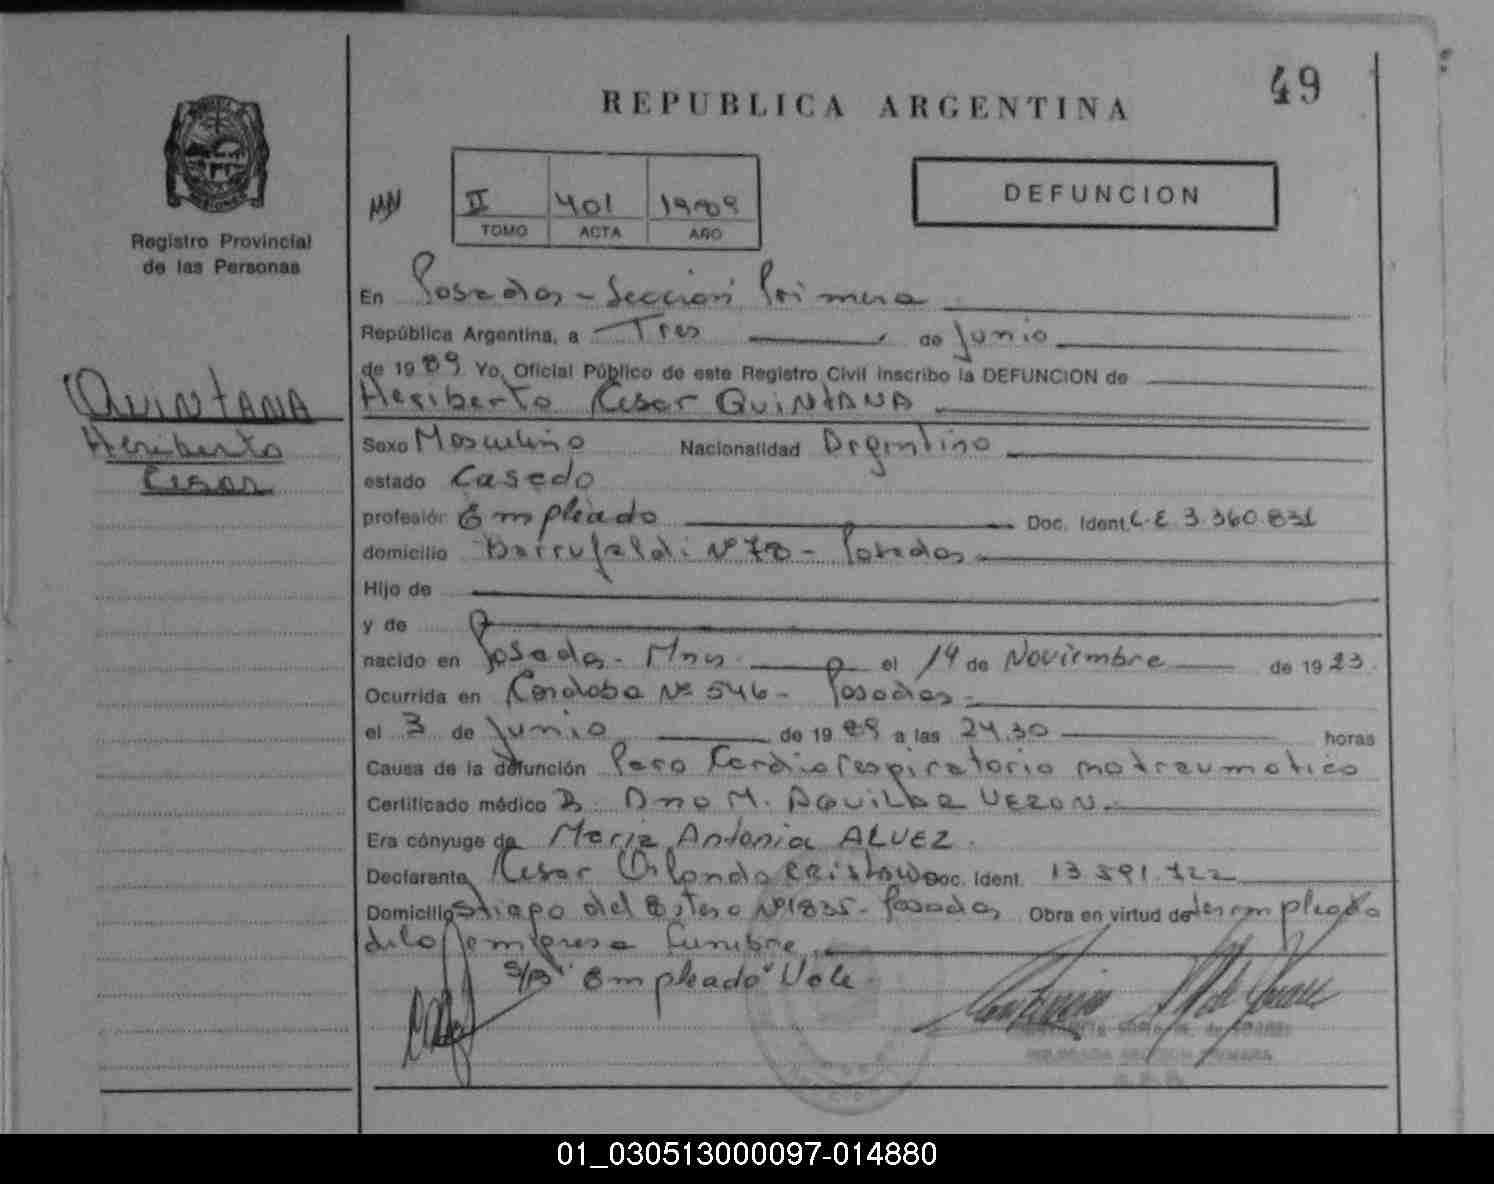 49
REPUBLICA ARGENTINA
DEFUNCION
II 401 1989
TOMO ACTA AÑO
Registro Provincial
de las Personas
QUINTANA
Heriberto
Cesar
En Posadas - Seccion Primera
República Argentina, a Tres de Junio
de 1989 Yo, Oficial Público de este Registro Civil inscribo la DEFUNCION de
Heriberto Cesar QUINTANA
Sexo Masculino Nacionalidad Argentino
estado Casado
profesión Empleado Doc. Ident. L.E 3.360.831
domicilio Barrufaldi Nº 78 - Posadas
Hijo de
y de
nacido en Posadas - Mnes. el 14 de Noviembre de 1923.
Ocurrida en Cordoba Nº 546 - Posadas
el 3 de Junio de 1989 a las 24,30 horas
Causa de la defunción Paro Cardiorespiratorio no traumatico
Certificado médico D. Ana M. AQUILAR VERON.
Era cónyuge de Maria Antonia ALVEZ.
Declarante Cesar Orlando CRISTALDO Doc. Ident. 13.591.722
Domicilio Stiago del Estero Nº 1835 - Posadas Obra en virtud de ser empleado
de la empresa funebre
S/B "Empleado" Vale
01_030513000097-014880